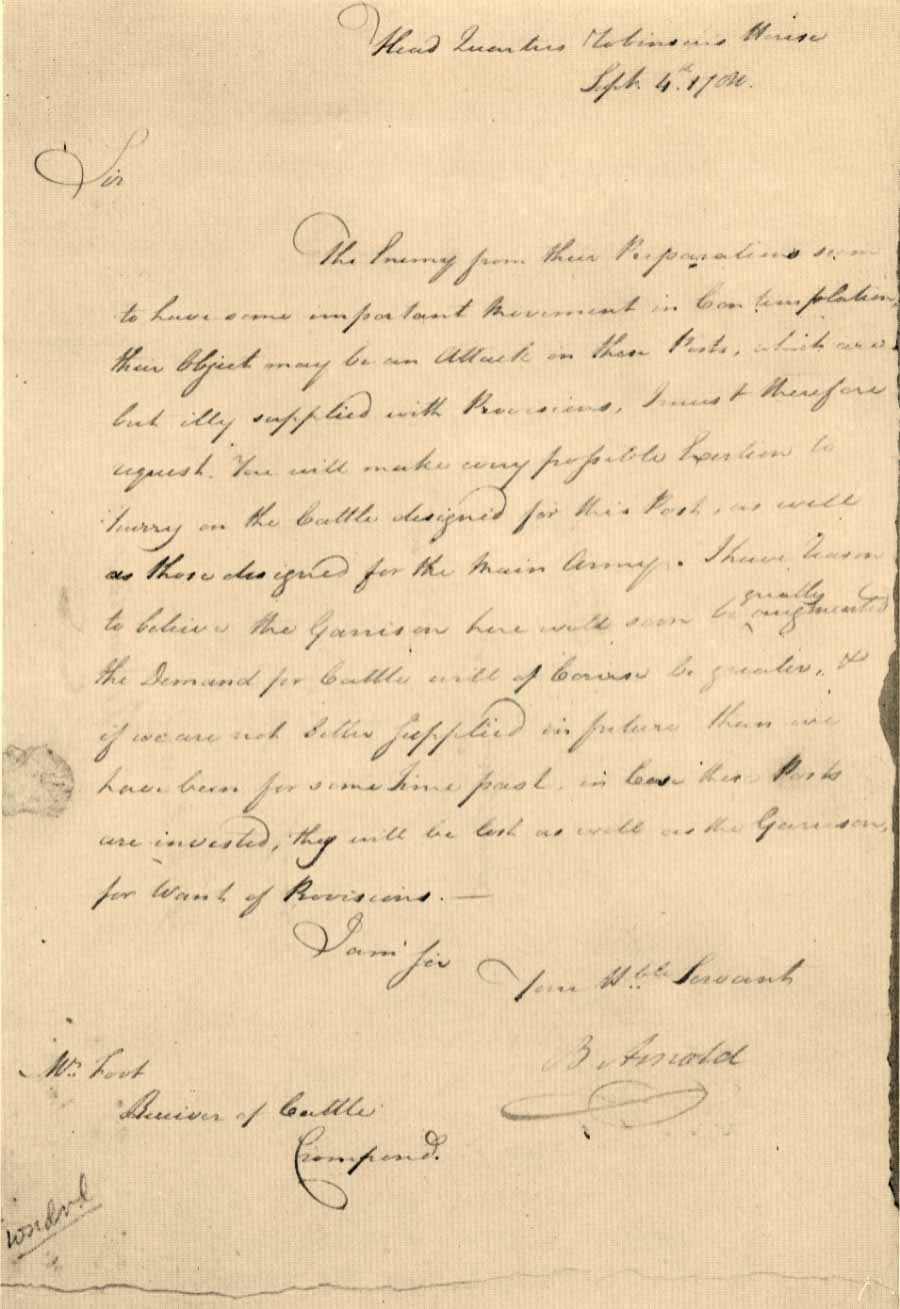 Head Quarters Robinsons House
Sept. 4th. 1780.
Sir
The Enemy from their Preparations seem
to have some important Movement in Contemplation,
their Object may be an Attack on these Posts, which are
but illy supplied with Provisions, I must therefore
request. You will make every possible Exertion to
hurry on the Cattle designed for this Post, as well
as those designed for the Main Army. I have Reason
to believe the Garrison here will soon be greatly augmented
the Demand for Cattle will of Course be greater, &
if we are not better supplied in future than we
have been for some time past, in Case these Posts
are invested, they will be lost as well as the Garrison,
for Want of Provisions. —
I am Sir
Your Hble Servant
B Arnold
Mr. Foot
Receiver of Cattle
Crompond.